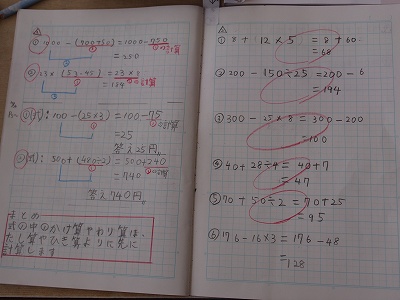 △
① 1000 - (700+50) = 1000 - 750
= 250
② 23 × (53-45) = 23 × 8
= 184
①(式): 100 - (25×3) = 100 - 75
= 25
答え 25円。
②(式): 500 + (480÷2) = 500+240
= 740
答え 740円。
まとめ
式の中のかけ算やわり算は、
たし算やひき算よりも先に
計算します
△
① 8 + 12 × 5 = 8 + 60
= 68
② 200 - 150÷25 = 200 - 6
= 194
③ 300 - 25 × 8 = 300 - 200
= 100
④ 40 + 28÷4 = 40+7
= 47
⑤ 70 + 50÷2 = 70+25
= 95
⑥ 176 - 16×3 = 176 - 48
= 128